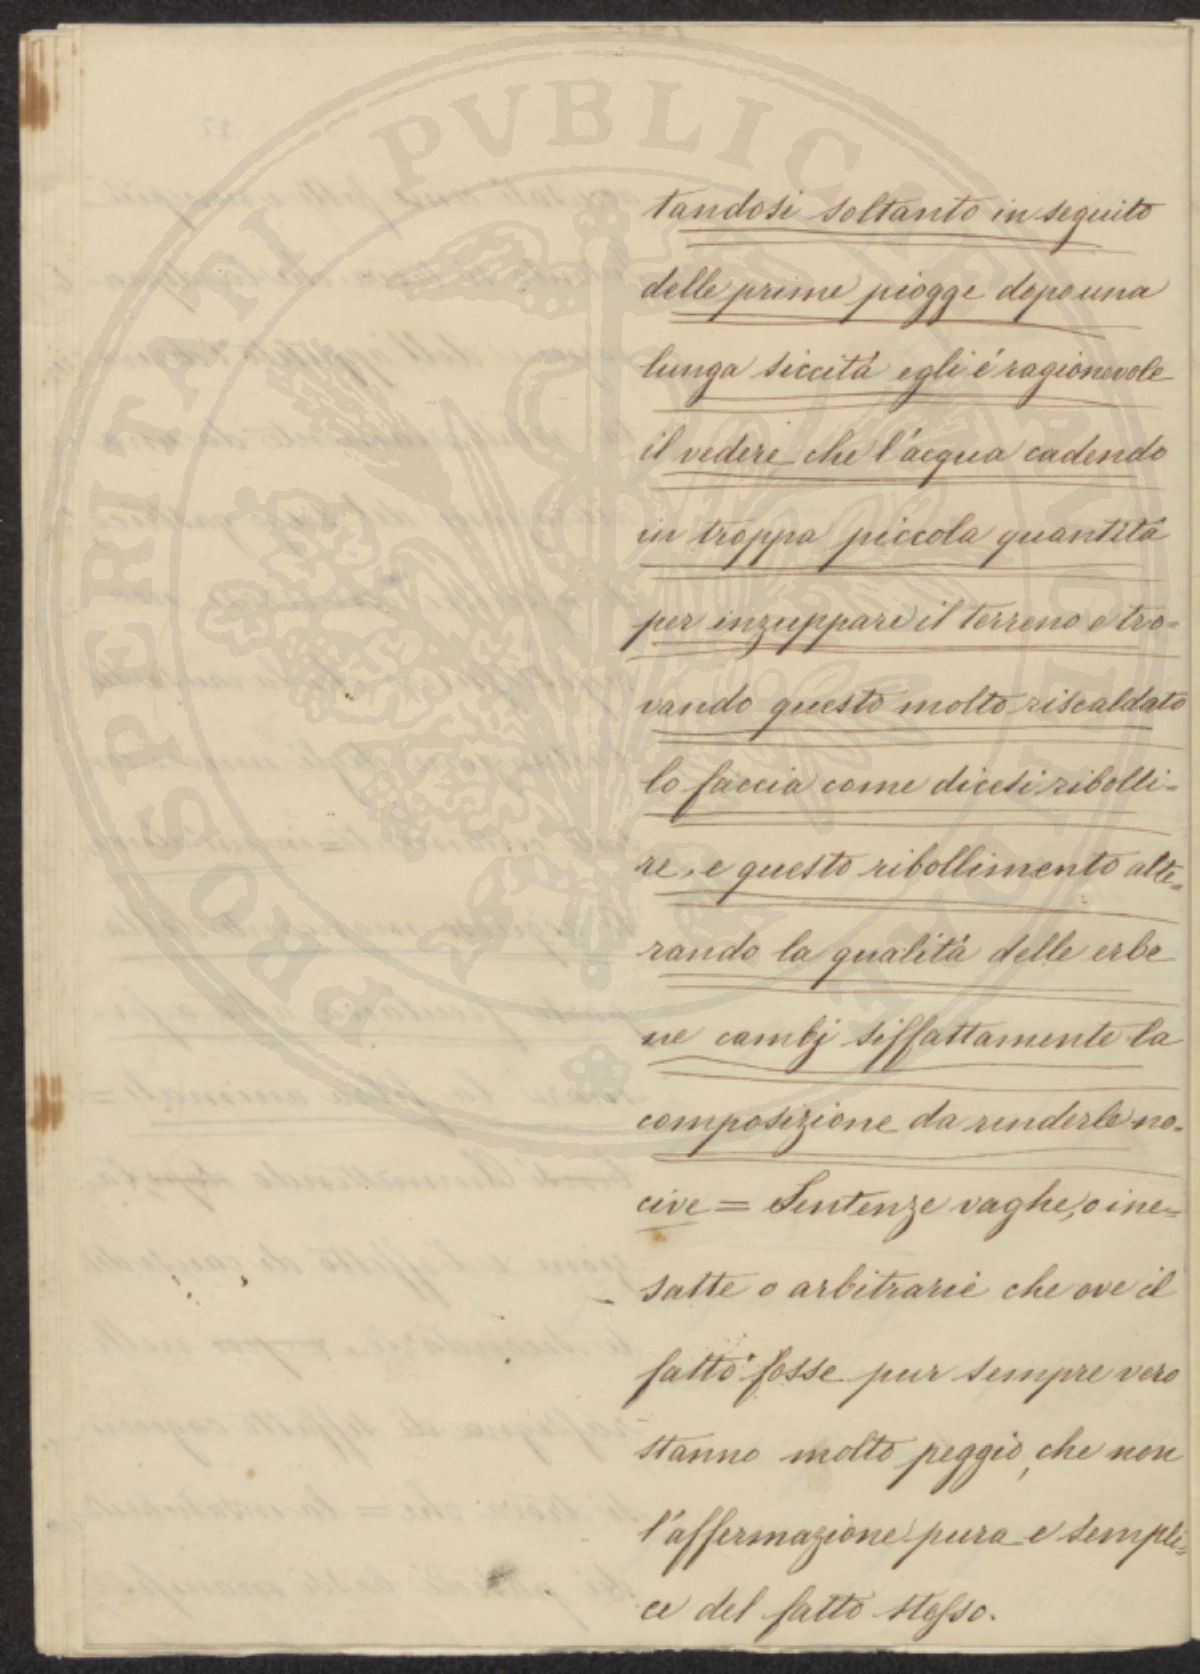 PROSPERITATI PVBLICAE AVGENDAE
tandosi soltanto in seguito
delle prime piogge dopo una
lunga siccità egli é ragionevole
il vedere che l'acqua cadendo
in troppa piccola quantità
per inzuppare il terreno e tro=
vando questo molto riscaldato
lo faccia come dicesi ribolli=
re, e questo ribollimento alte=
rando la qualità delle erbe
ne cambj siffattamente la
composizione da renderle no=
cive = Sentenze vaghe, o ine=
satte o arbitrarie che ove il
fatto fosse pur sempre vero
stanno molto peggio, che non
l'affermazione pura e sempli=
ce del fatto stesso.